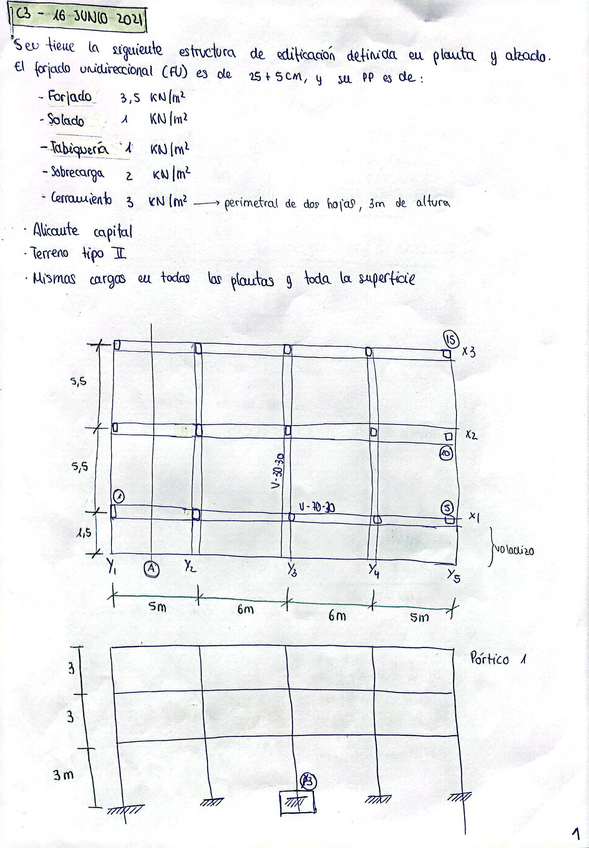 C3 - 16 JUNIO 2021
Seu tiene la siguiente estructura de edificación definida en planta y alzado.
El forjado unidireccional (FU) es de 25+5cm, y su PP es de:
- Forjado 3,5 KN/m²
- Solado 1 KN/m²
- Tabiquería 1 KN/m²
- Sobrecarga 2 KN/m²
- Cerramiento 3 KN/m² → perimetral de dos hojas, 3m de altura
· Alicante capital
· Terreno tipo II
· Mismas cargas en todas las plantas y toda la superficie
15
X3
5,5
X2
10
5,5
V-30-30
1
V-70-30
5
X1
1,5
voladizo
Y1
A
Y2
Y3
Y4
Y5
5m
6m
6m
5m
Pórtico 1
3
3
3m
P3
1